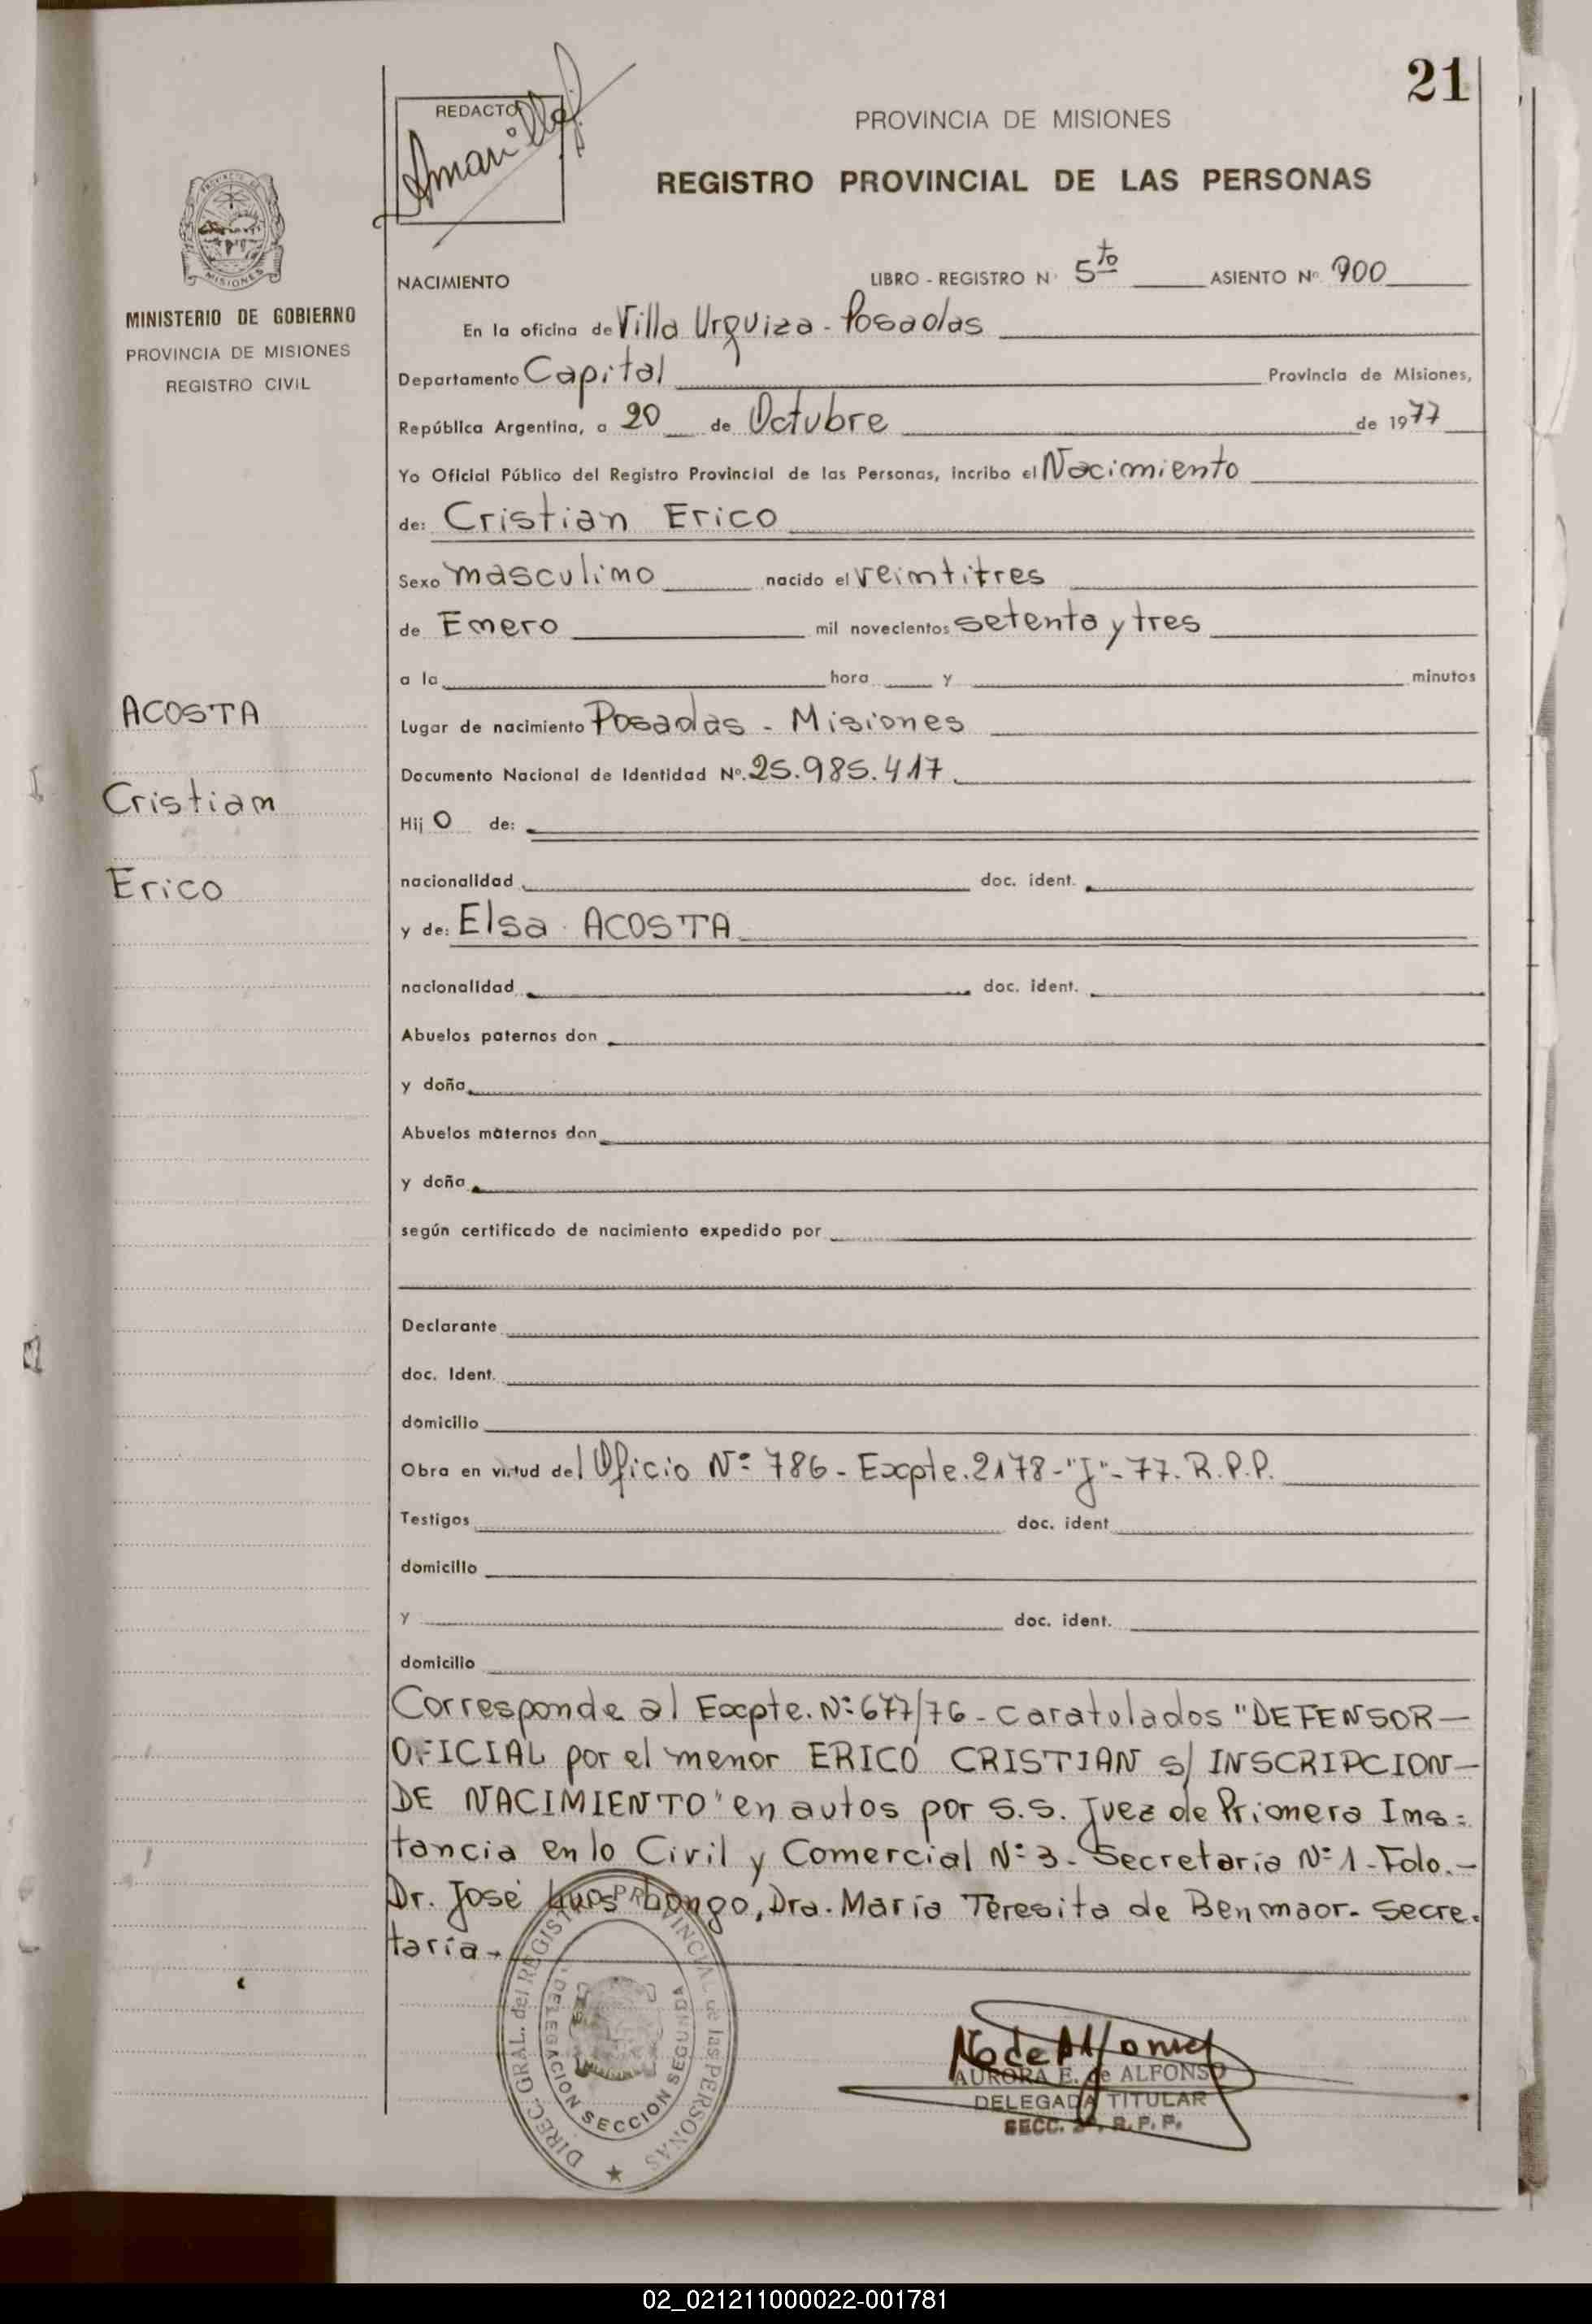 21
REDACTOR
Amarilla
PROVINCIA DE MISIONES
REGISTRO PROVINCIAL DE LAS PERSONAS
PROVINCIA DE
MISIONES
MINISTERIO DE GOBIERNO
PROVINCIA DE MISIONES
REGISTRO CIVIL
NACIMIENTO LIBRO - REGISTRO N° 5to ASIENTO Nº 900
En la oficina de Villa Urquiza - Posadas
Departamento Capital Provincia de Misiones,
República Argentina, a 20 de Octubre de 1977
Yo Oficial Público del Registro Provincial de las Personas, incribo el Nacimiento
de: Cristian Erico
Sexo masculino nacido el veintitres
de Enero mil novecientos setenta y tres
a la hora y minutos
ACOSTA
Lugar de nacimiento Posadas - Misiones
Documento Nacional de Identidad Nº. 25.985.417
Cristian
Hijo de:
Erico
nacionalidad doc. ident.
y de: Elsa ACOSTA
nacionalidad doc. ident.
Abuelos paternos don
y doña
Abuelos maternos don
y doña
según certificado de nacimiento expedido por
Declarante
doc. Ident.
domicilio
Obra en virtud del Oficio Nº 786 - Excpte. 2178-"J"-77. R.P.P.
Testigos doc. ident
domicilio
y doc. ident.
domicilio
Corresponde al Excpte. Nº 677/76 - caratulados "DEFENSOR—
OFICIAL por el menor ERICO CRISTIAN s/ INSCRIPCION—
DE NACIMIENTO" en autos por S.S. Juez de Primera Ins=
tancia en lo Civil y Comercial Nº 3 - Secretaria Nº 1 - Fdo.-
Dr. José Luis Longo, Dra. María Teresita de Benmaor - Secre.
taria -
DIREC. GRAL. del REGISTRO PROVINCIAL de las PERSONAS
DELEGACION SECCION SEGUNDA
AURORA E. de ALFONSO
DELEGADA TITULAR
SECC. 2ª R. P. P.
02_021211000022-001781